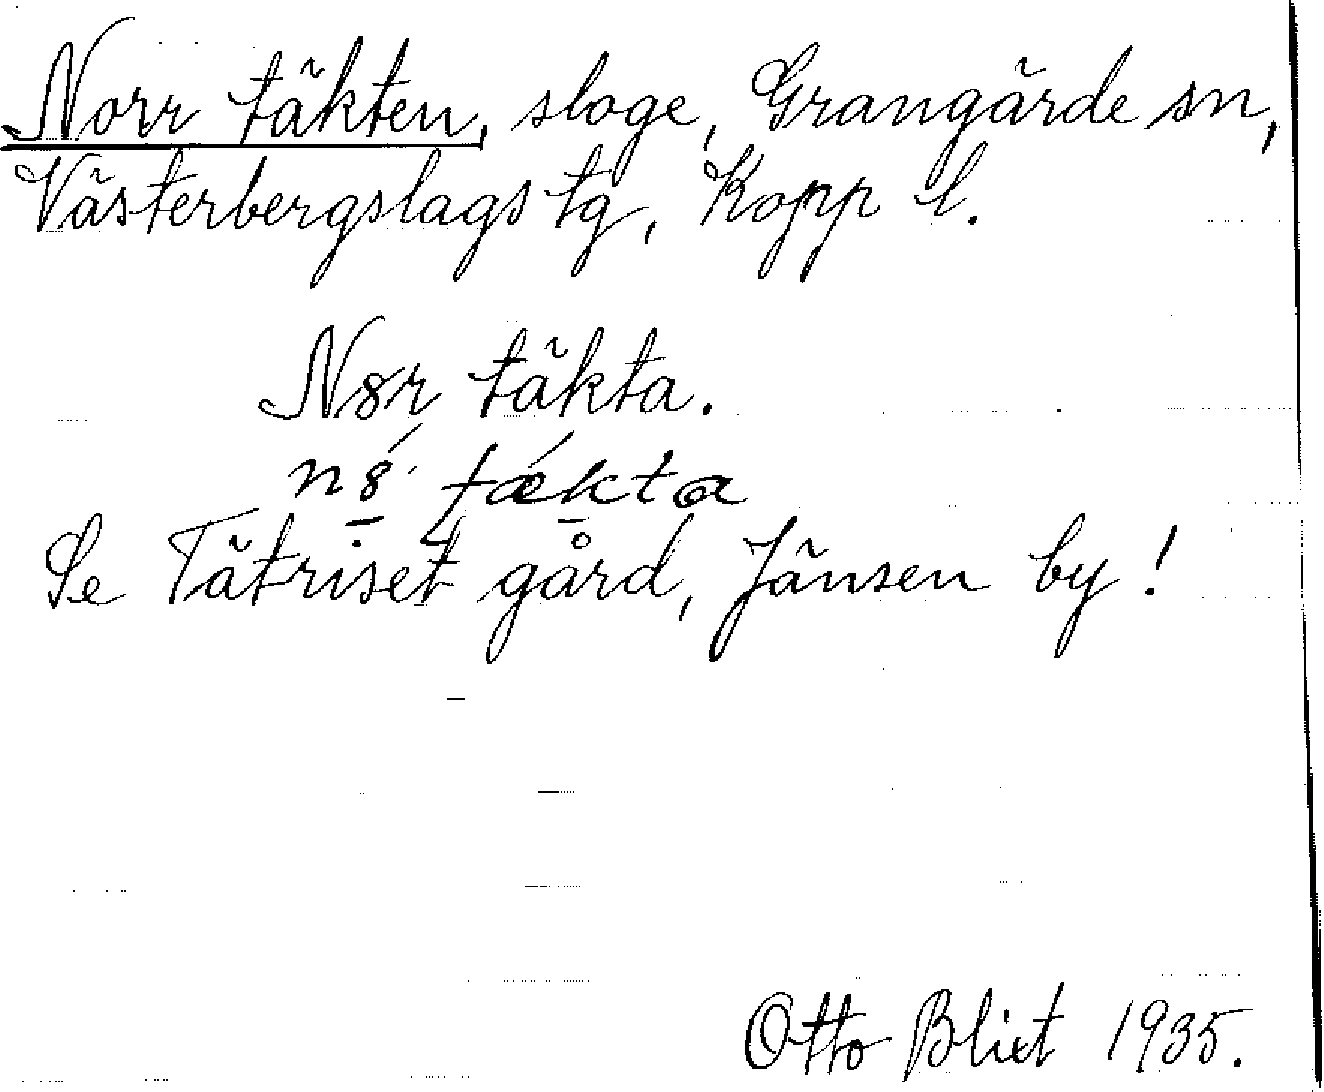 Norr täkten, sloge, Grangärde sn,
Västerbergslags tg, Kopp l.
N8r täkta.
n8́ tǽkta
Se Tätriset gård, Jänsen by!
Otto Blixt 1935.